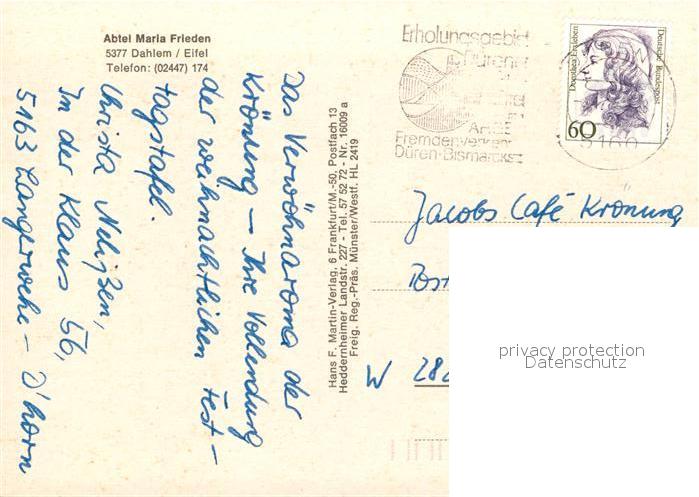 Abtei Maria Frieden
5377 Dahlem / Eifel
Telefon: (02447) 174
Das Verwöhnaroma der
Krönung – Ihre Vollendung
der weihnachtlichen Fest-
tagstafel.
Christa Nelißen,
In der Klaus 56,
5163 Langerwehe – D'horn
Hans F. Martin-Verlag, 6 Frankfurt/M.-50, Postfach 13
Heddernheimer Landstr. 227 - Tel. 57 52 72 - Nr. 16009 a
Freig. Reg.-Präs. Münster/Westf. HL 2419
Erholungsgebiet
Dürener
Fremdenverkehr
Düren-Bismarckst
5160
Dorothea Erxleben
Deutsche Bundespost
60
Jacobs Café Krönung
Post
W 282
privacy protection
Datenschutz